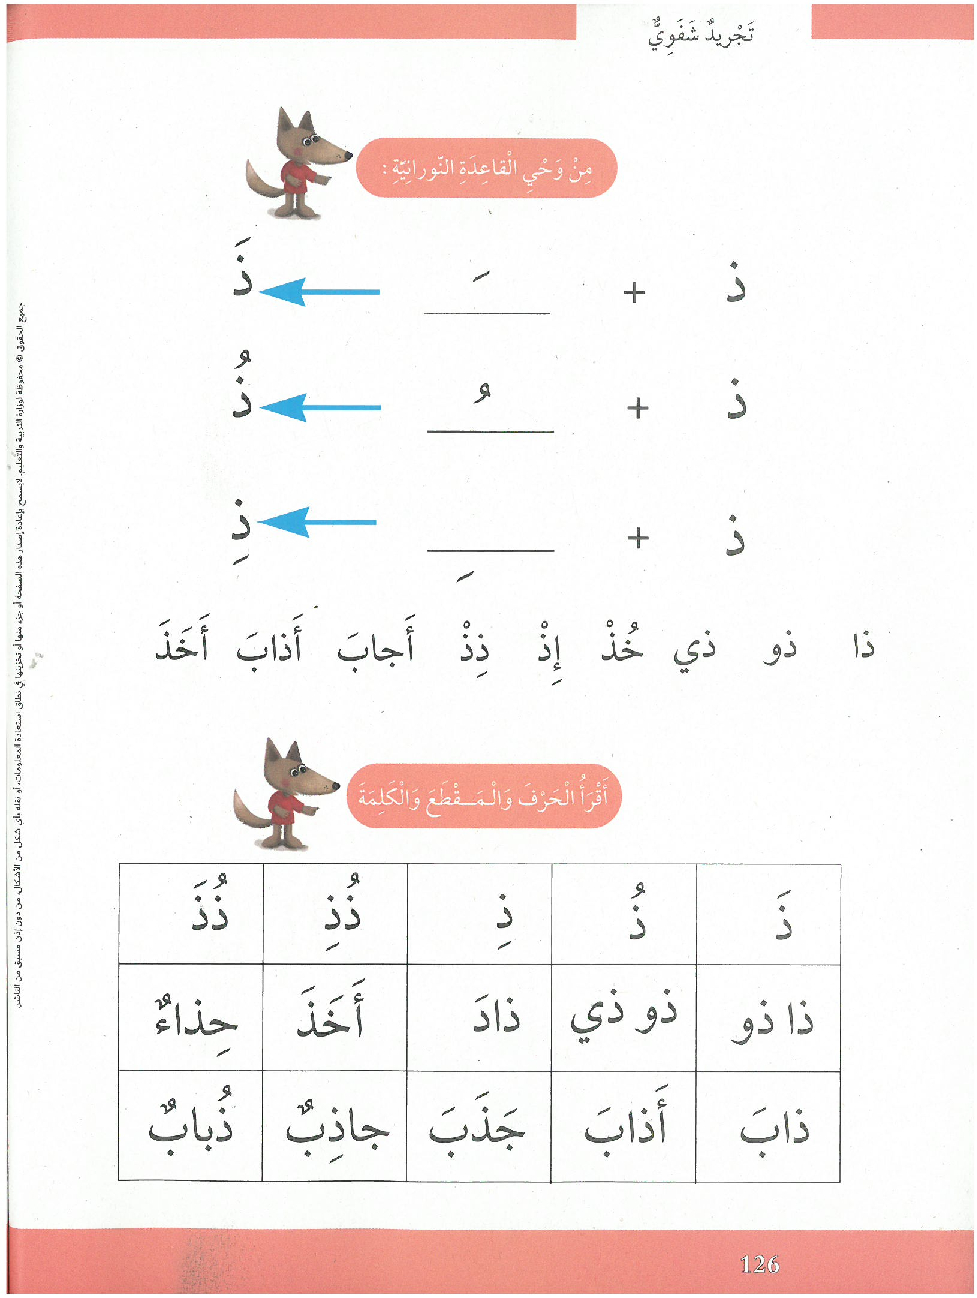 تَجْرِيدٌ شَفَوِيٌّ
مِنْ وَحْيِ الْقاعِدَةِ النّورانِيَّةِ :
ذ + ـَ ذَ
ذ + ـُ ذُ
ذ + ـِ ذِ
ذا ذو ذي خُذْ إِذْ ذِذْ أَجابَ أَذابَ أَخَذَ
أَقْرَأُ الْحَرْفَ وَالْمَـــقْطَعَ وَالْكَلِمَةَ
ذَ ذُ ذِ ذُذِ ذُذَ
ذا ذو ذو ذي ذادَ أَخَذَ حِذاءٌ
ذابَ أَذابَ جَذَبَ جاذِبٌ ذُبابٌ
جميع الحقوق © محفوظة لوزارة التربية والتعليم. لا يسمح بإعادة إصدار هذه الصفحة أو جزء منها أو تخزينها في نطاق استعادة المعلومات، أو نقله بأي شكل من الأشكال، من دون إذن مسبق من الناشر
126